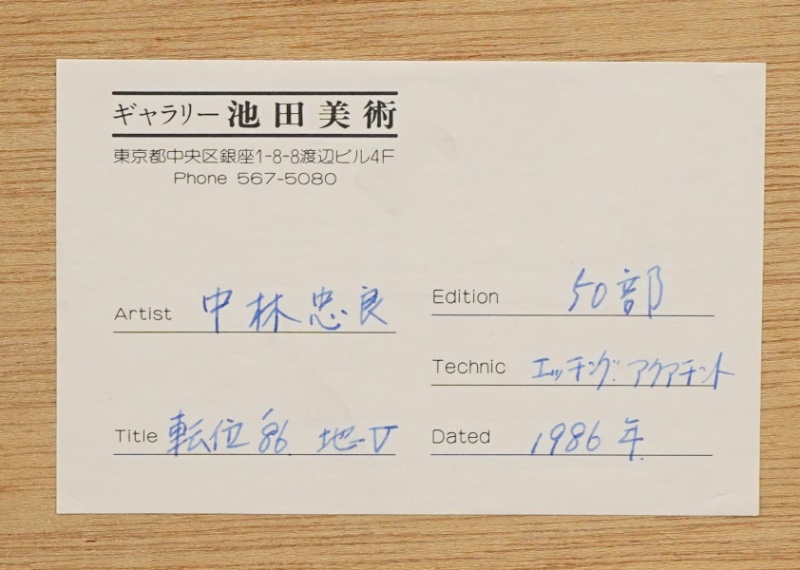 ギャラリー 池田美術
東京都中央区銀座1-8-8渡辺ビル4F
Phone 567-5080
Artist 中林忠良
Title 転位'86. 地-V
Edition 50部
Technic エッチング.アクアチント
Dated 1986年.